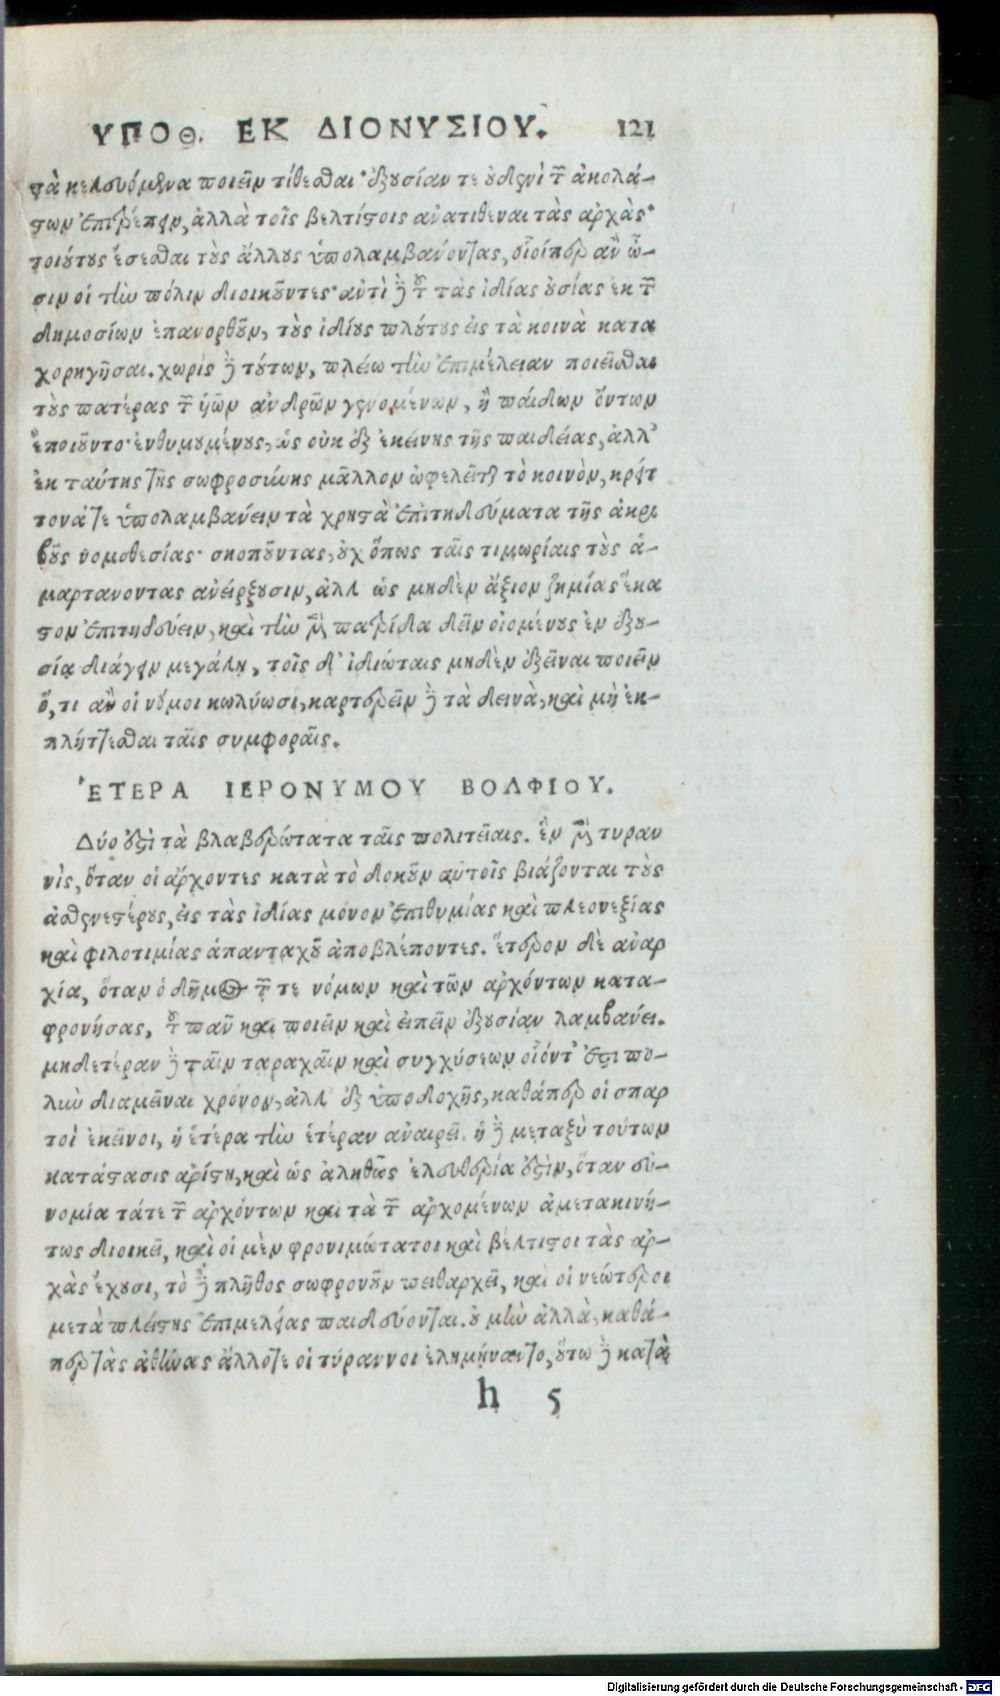 ΥΠΟΘ. ΕΚ ΔΙΟΝΥΣΙΟΥ. 121
τὰ κελευόμενα ποιεῖν τίθεσθαι· ἐξουσίαν τε οὐδενὶ τῶν ἀκολά-
στων ἐπιτρέπειν, ἀλλὰ τοῖς βελτίστοις ἀνατιθέναι τὰς ἀρχὰς·
τοιούτους ἔσεσθαι τοὺς ἄλλους ὑπολαμβάνοντας, οἷοίπερ ἂν ὦ-
σιν οἱ τὴν πόλιν διοικοῦντες· ἀντὶ δὲ τοῦ τὰς ἰδίας οὐσίας ἐκ τῶν
δημοσίων ἐπανορθοῦν, τοὺς ἰδίους πλούτους εἰς τὰ κοινὰ κατα
χορηγῆσαι. χωρὶς δὲ τούτων, πλείω τὴν ἐπιμέλειαν ποιεῖσθαι
τοὺς πατέρας τῶν ὑῶν ἀνδρῶν γενομένων, ἢ παίδων ὄντων
ἐποιοῦντο· ἐνθυμουμένους, ὡς οὐκ ἐξ ἐκείνης τῆς παιδείας, ἀλλ'
ἐκ ταύτης τῆς σωφροσύνης μᾶλλον ὠφελεῖται τὸ κοινὸν, κρεῖτ
τονά τε ὑπολαμβάνειν τὰ χρηστὰ ἐπιτηδεύματα τῆς ἀκρι
βοῦς νομοθεσίας· σκοποῦντας, οὐχ ὅπως ταῖς τιμωρίαις τοὺς ἁ-
μαρτάνοντας ἀνείρξουσιν, ἀλλ ὡς μηδὲν ἄξιον ζημίας ἕκα
στον ἐπιτηδεύειν, καὶ τὴν μὲν πατρίδα δεῖν οἰομένους ἐν ἐξου-
σίᾳ διάγειν μεγάλῃ, τοῖς δ' ἰδιώταις μηδὲν ἐξεῖναι ποιεῖν
ὅ, τι ἂν οἱ νόμοι κωλύωσι, καρτερεῖν δὲ τὰ δεινὰ, καὶ μὴ ἐκ-
πλήττεσθαι ταῖς συμφοραῖς.
ἙΤΕΡΑ ΙΕΡΟΝΥΜΟΥ ΒΟΛΦΙΟΥ.
Δύο ἐστὶ τὰ βλαβερώτατα ταῖς πολιτείαις. ἓν μὲν τυραν
νὶς, ὅταν οἱ ἄρχοντες κατὰ τὸ δοκοῦν αὐτοῖς βιάζονται τοὺς
ἀσθενεστέρους, εἰς τὰς ἰδίας μόνον ἐπιθυμίας καὶ πλεονεξίας
καὶ φιλοτιμίας ἁπανταχοῦ ἀποβλέποντες. ἕτερον δὲ ἀναρ
χία, ὅταν ὁ δῆμος τῶν τε νόμων καὶ τῶν ἀρχόντων κατα-
φρονήσας, τοῦ πᾶν καὶ ποιεῖν καὶ εἰπεῖν ἐξουσίαν λαμβάνει.
μηδετέραν δὲ ταῖν ταραχαῖν καὶ συγχύσεων οἷόντ' ἐστι πο-
λὺν διαμεῖναι χρόνον, ἀλλ ἐξ ὑποδοχῆς, καθάπερ οἱ σπαρ
τοὶ ἐκεῖνοι, ἡ ἑτέρα τὴν ἑτέραν ἀναιρεῖ. ἡ δὲ μεταξὺ τούτων
κατάστασις ἀρίστη, καὶ ὡς ἀληθῶς ἐλευθερία ἐστὶν, ὅταν εὐ-
νομία τάτε τῶν ἀρχόντων καὶ τὰ τῶν ἀρχομένων ἀμετακινή-
τως διοικεῖ, καὶ οἱ μὲν φρονιμώτατοι καὶ βέλτιστοι τὰς ἀρ-
χὰς ἔχουσι, τὸ δὲ πλῆθος σωφρονοῦν πειθαρχεῖ, καὶ οἱ νεώτεροι
μετὰ πλείστης ἐπιμελείας παιδεύονται. οὐ μὴν ἀλλὰ, καθά-
περ τὰς ἀθήνας ἄλλοτε οἱ τύραννοι ἐλυμήναντο, οὕτω δὲ κατὰ
h 5
Digitalisierung gefördert durch die Deutsche Forschungsgemeinschaft - DFG